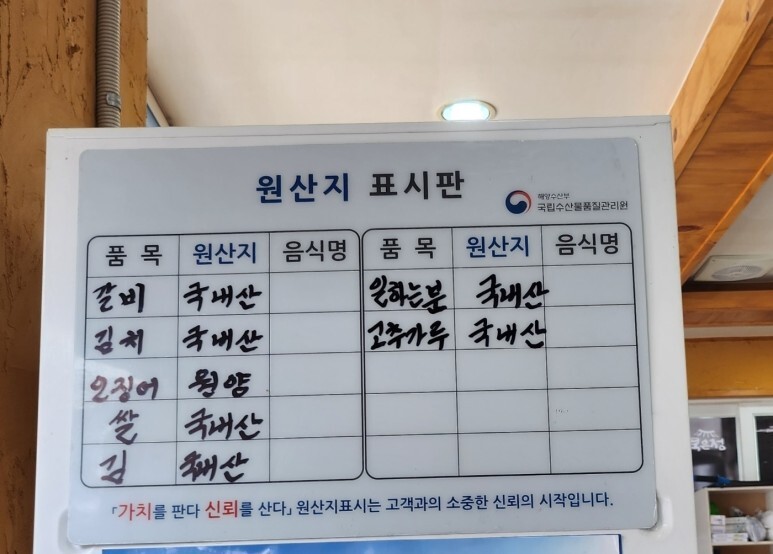 원산지 표시판
해양수산부
국립수산물품질관리원
품 목 원산지 음식명 품 목 원산지 음식명
갈비 국내산 일하는분 국내산
김치 국내산 고추가루 국내산
오징어 원양
쌀 국내산
김 국내산
「가치를 판다 신뢰를 산다」 원산지표시는 고객과의 소중한 신뢰의 시작입니다.